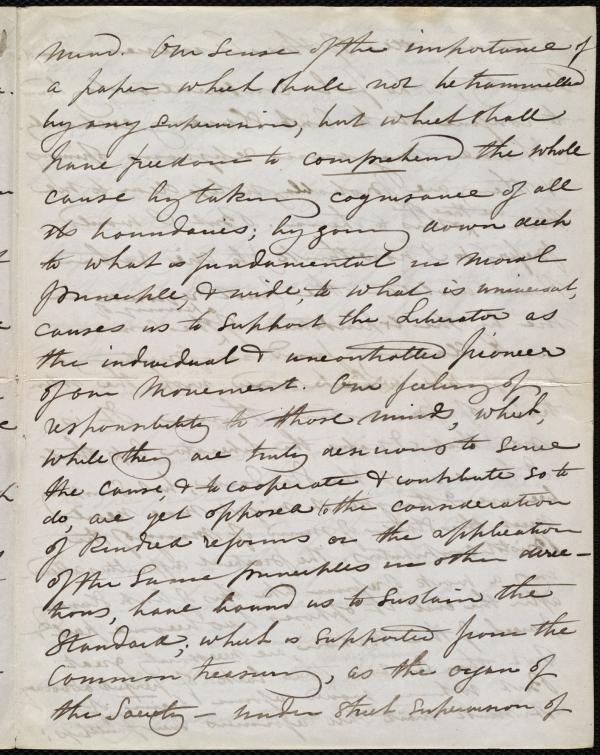 mind. Our sense of the importance of
a paper which shall not be trammelled
by any supervision, but which shall
have freedom to comprehend the whole
cause by taking cognisance of all
its boundaries; by going down deep
to what is fundamental in moral
principle, & wide, to what is universal,
causes us to support the Liberator as
the individual & uncontrolled pioneer
of our movement. Our feeling of
responsibility to those minds, which,
while they are truly desirous to serve
the cause, & to cooperate & contribute so to
do, are yet opposed to the consideration
of kindred reforms or the application
of the same principles in other direc-
tions, have bound us to sustain the
Standard; which is supported from the
common treasury, as the organ of
the Society - under strict supervision of